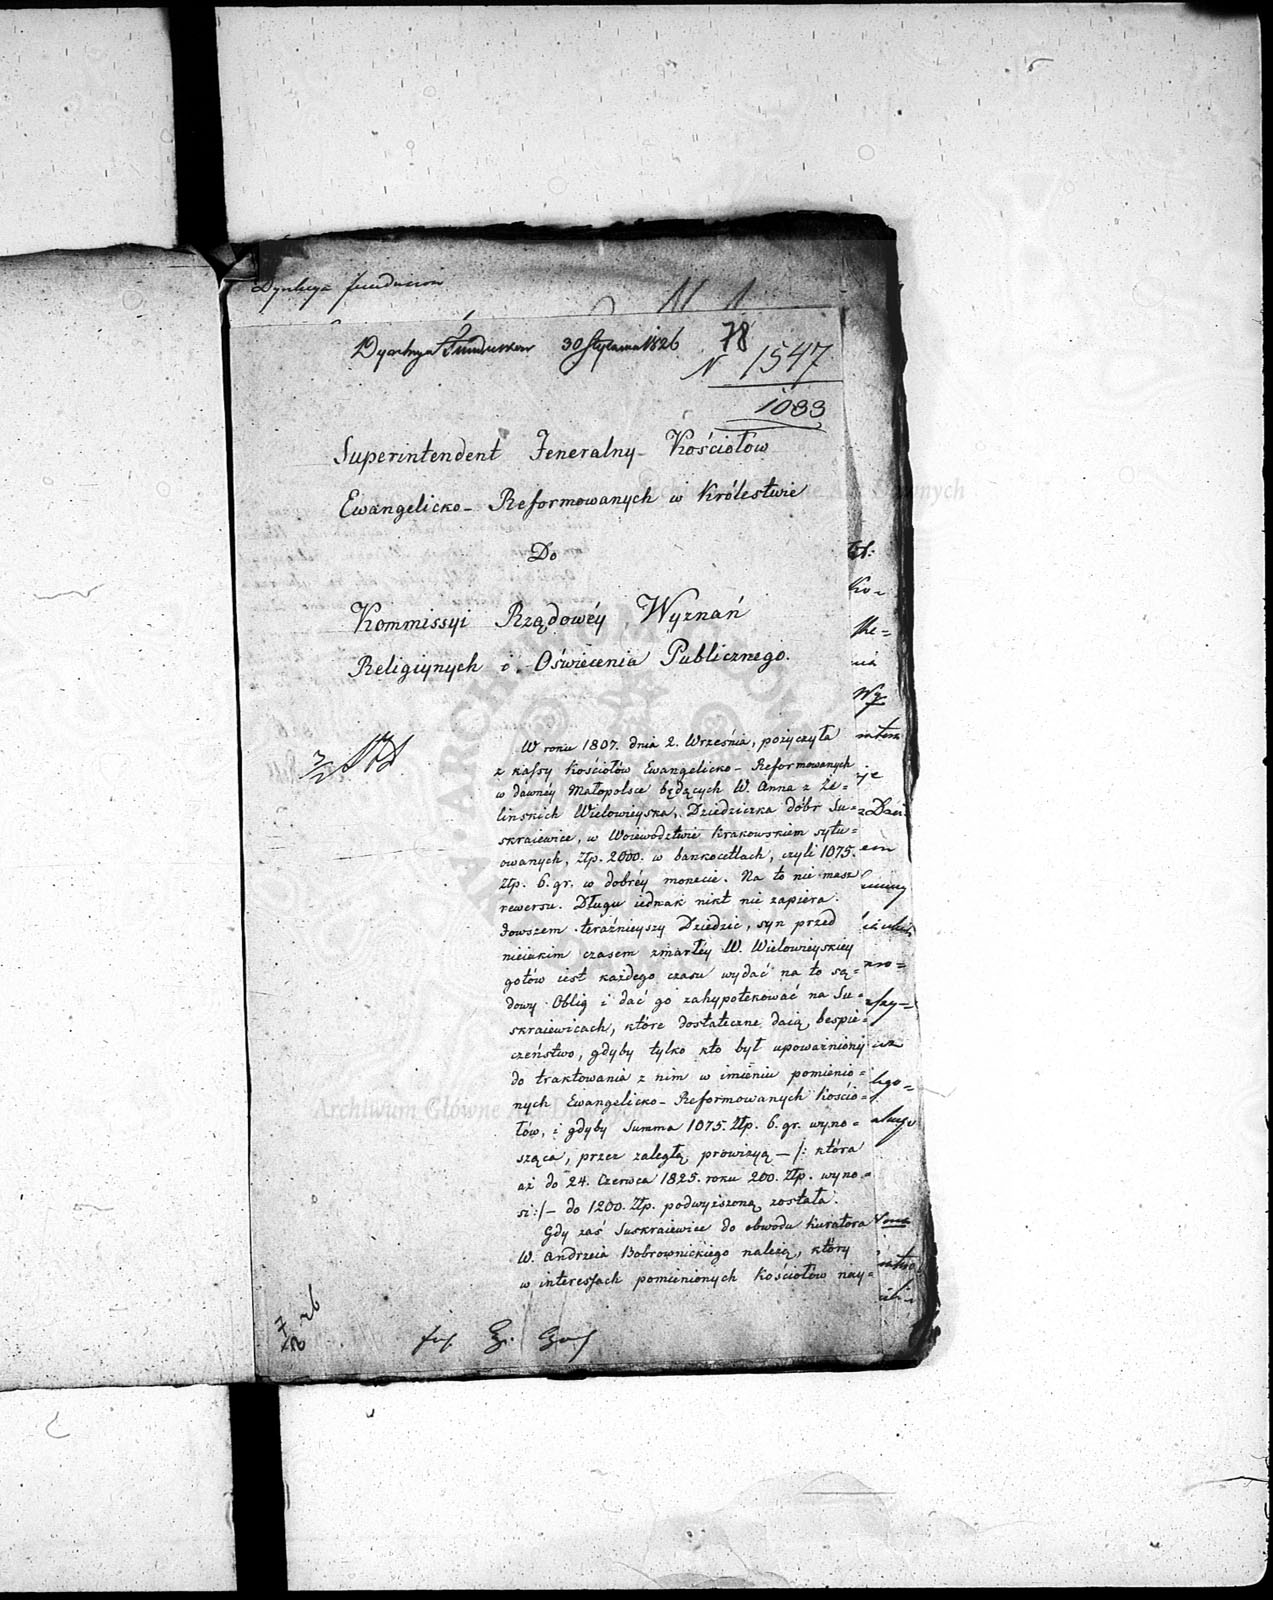 Dyrekcya funduszow
Dyrekcya Funduszow 30 Stycznia 1826 78
N 1547
1083
Superintendent Jeneralny Kościołów
Ewangelicko-Reformowanych w Królestwie
Do
Kommissyi Rządowéy Wyznań
Religiynych i Oświecenia Publicznego.
W roku 1807. dnia 2. Września, pożyczyła
z kassy Kościołów Ewangelicko-Reformowanych
w dawnéy Małopolsce będących W. Anna z Że=
linskich Wielowieyska, Dziedziczka dóbr Su=
skraiewice, w Województwie Krakowskiem sytu=
owanych, Złp. 2000. w bankocetlach, czyli 1075.
Złp. 6. gr. w dobréy monecie. Na to nie masz
rewersu. Długu iednak nikt nie zapiera.
Jowszem teraźnieyszy Dziedzic, syn przed
nieiakim czasem zmarłéy W. Wielowieyskiey
gotów iest każdego czasu wydać na to są=
dowy Oblig i dać go zahypotekować na Su=
skraiewicach, które dostateczne daią bespie=
czeństwo, gdyby tylko kto był upoważniony
do traktowania z nim w imieniu pomienio=
nych Ewangelicko-Reformowanych Kościo=
łów, i gdyby Summa 1075. Złp. 6. gr. wyno=
sząca, przez zaległą prowizyą — /: która
aż do 24. Czerwca 1825. roku 200. Złp. wyno=
si :/ — do 1200. Złp. podwyższoną została.
Gdy zaś Suskraiewice do obwodu Kuratora
W. Andrzeia Bobrownickiego należą, który
w interessach pomienionych Kościołów nay=